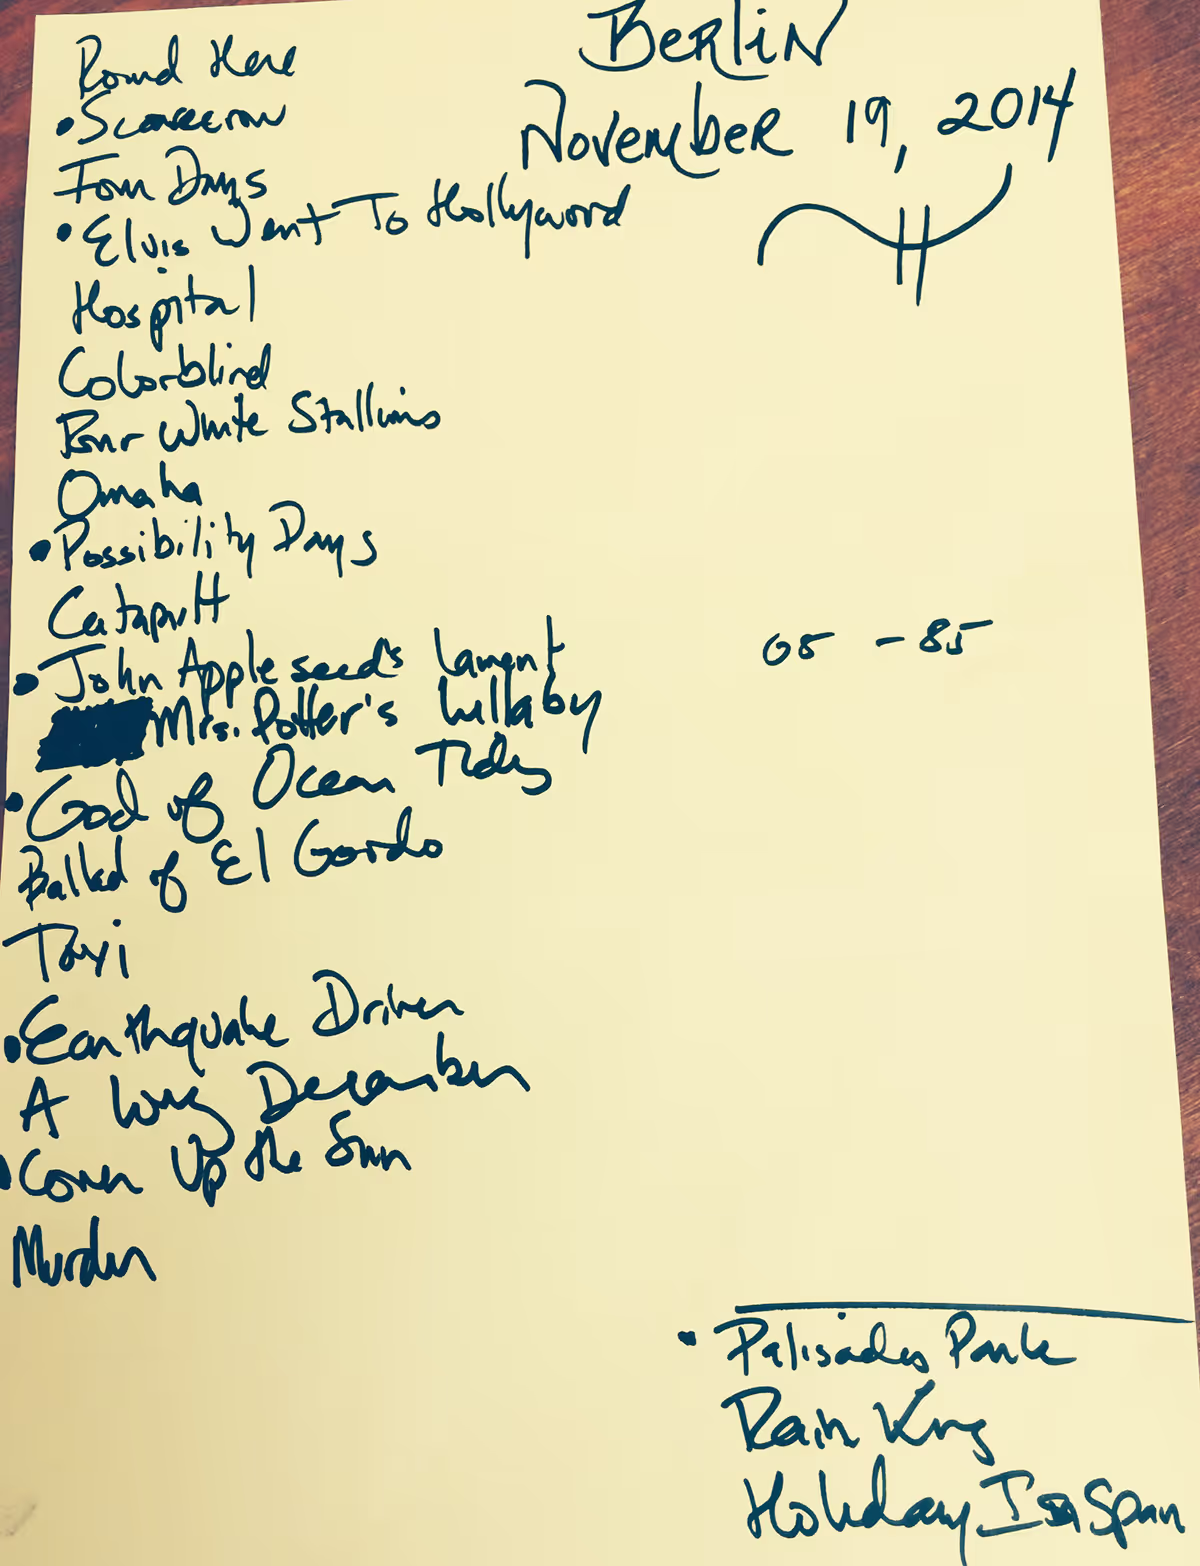 Berlin
November 19, 2014
Round Here
• Scarecrow
Four Days
• Elvis Went To Hollywood
Hospital
Colorblind
Four White Stallions
Omaha
• Possibility Days
Catapult
05 - 85
• John Appleseed's Lament
Mrs. Potter's Lullaby
• God of Ocean Tides
Ballad of El Gordo
Taxi
• Earthquake Driver
A Long December
• Cover Up the Sun
Murder
• Palisades Park
Rain King
Holiday In Spain